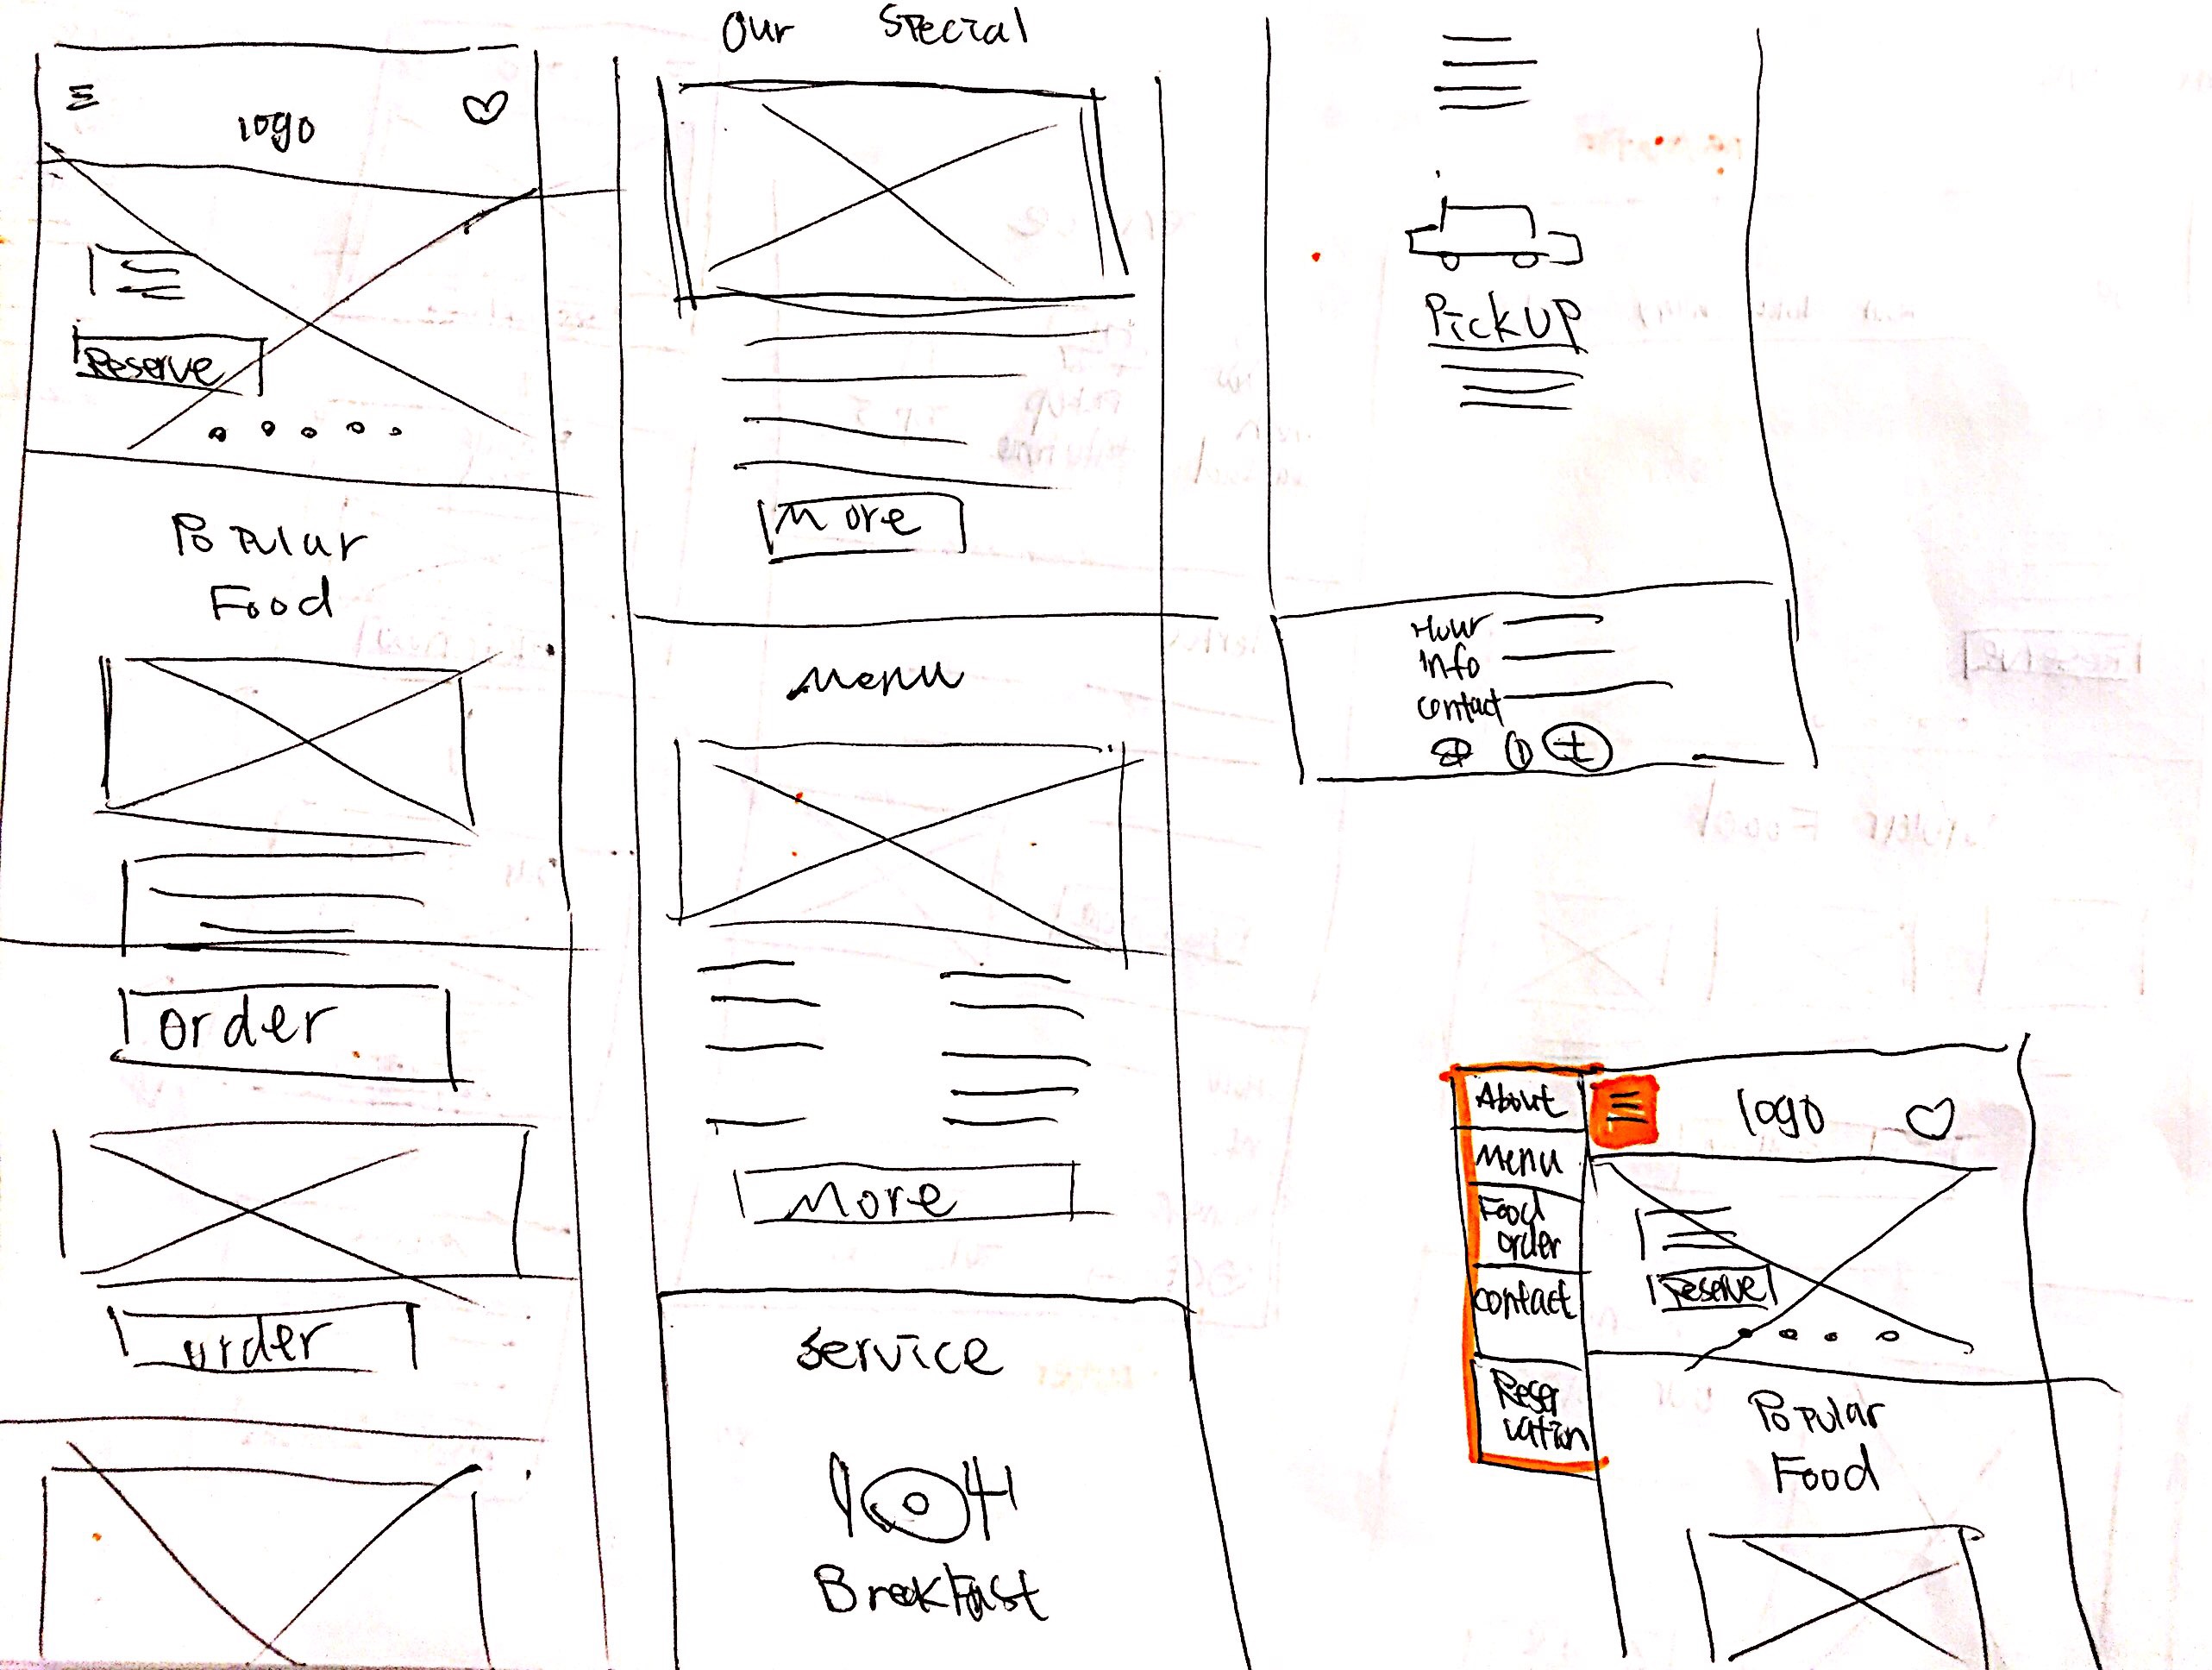 logo
Reserve
Popular
Food
order
order
Our Special
More
Menu
More
Service
Breakfast
PickUP
Hour
info
contact
About
Menu
Food
order
contact
Reser
vation
logo
Reserve
Popular
Food